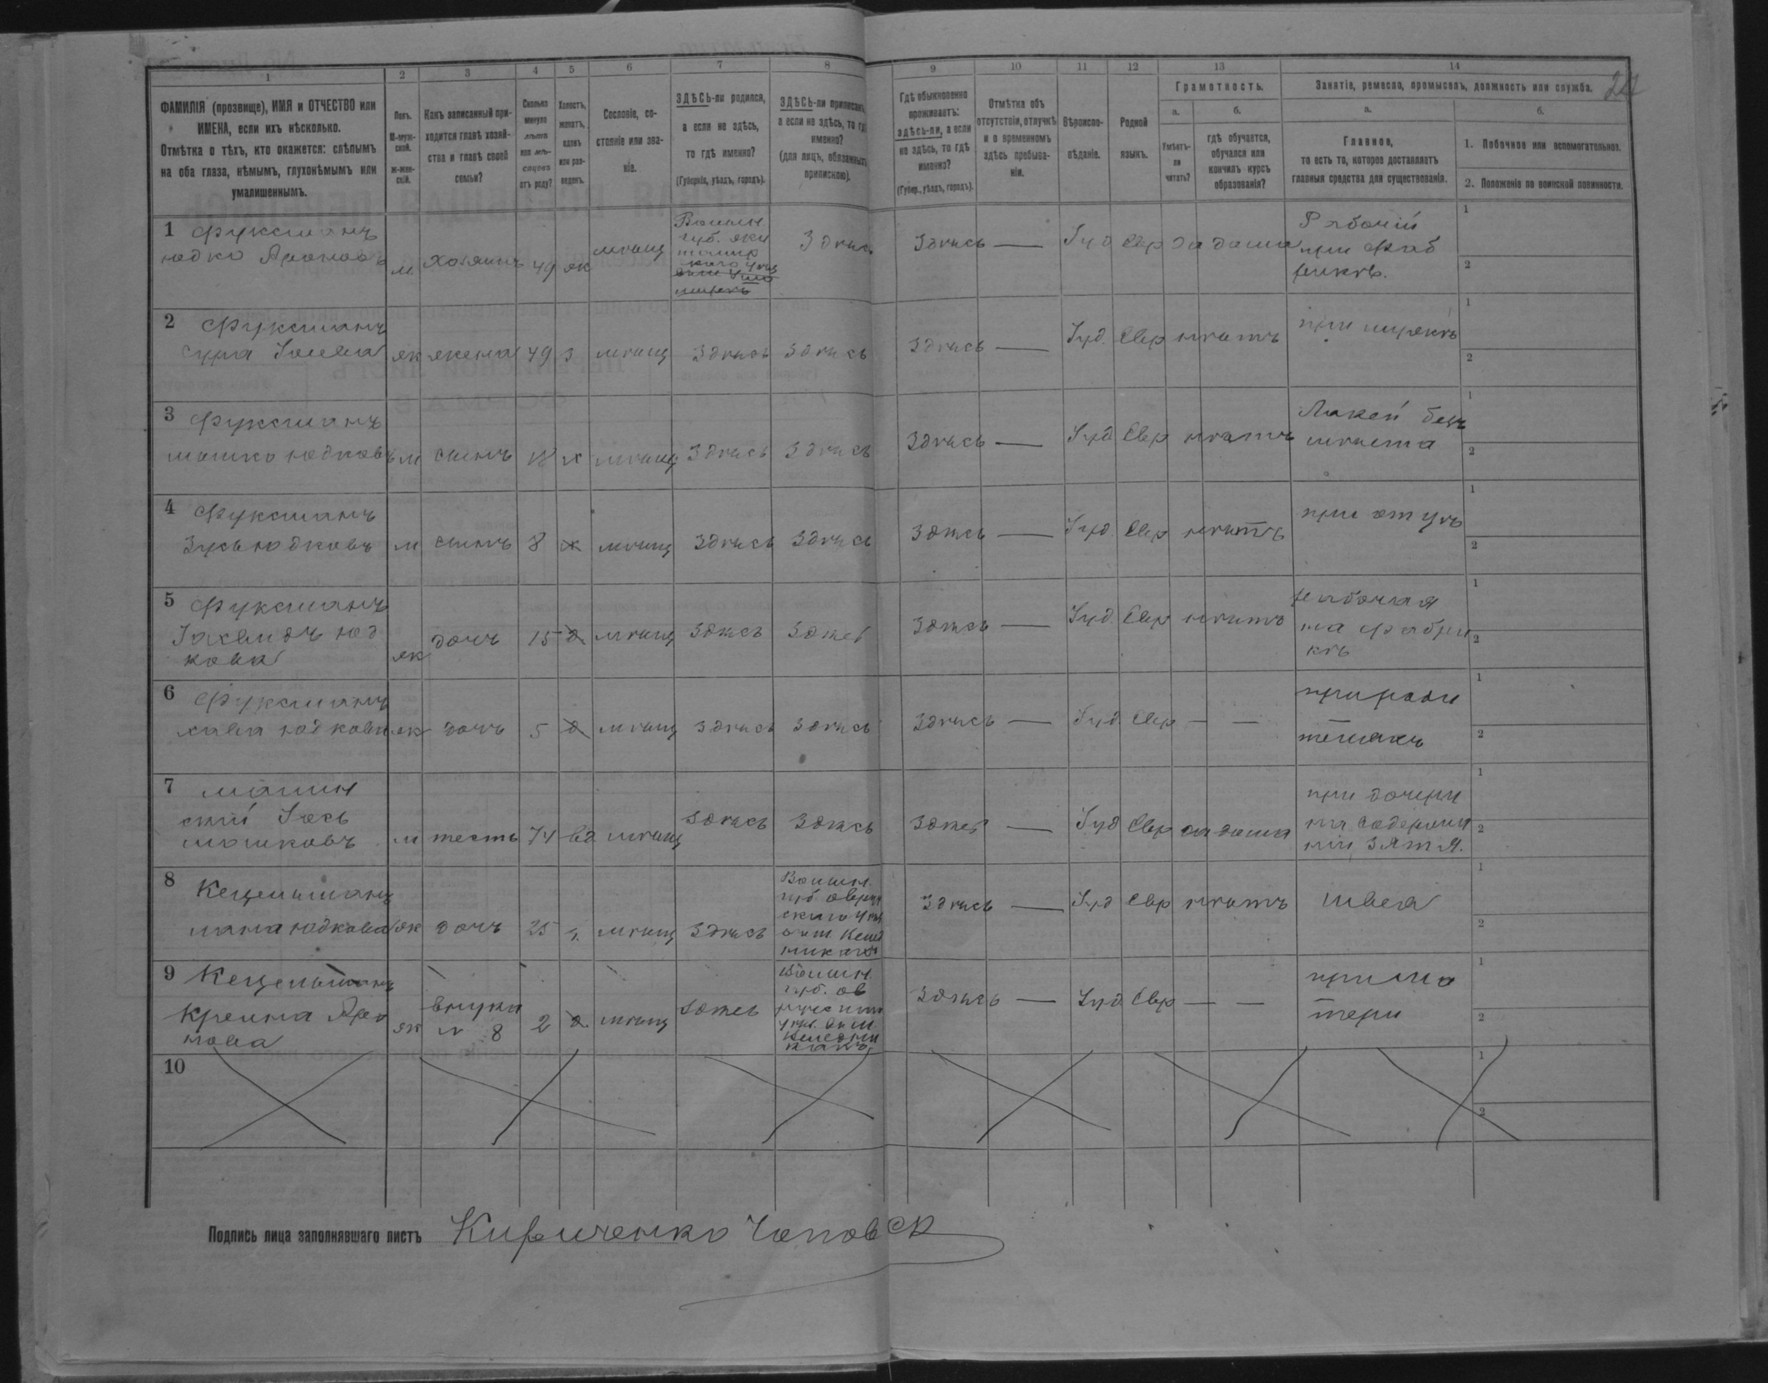 1 2 3 4 5 6 7 8 9 10 11 12 13 14
ФАМИЛІЯ (прозвище), ИМЯ и ОТЧЕСТВО или
ИМЕНА, если ихъ нѣсколько.
Отмѣтка о тѣхъ, кто окажется: слѣпымъ
на оба глаза, нѣмымъ, глухонѣмымъ или
умалишеннымъ.
Полъ.
М-муж-
ской.
Ж-жен-
скій.
Какъ записанный при-
ходится главѣ хозяй-
ства и главѣ своей
семьи?
Сколько
минуло
лѣтъ
или мѣ-
сяцевъ
отъ роду?
Холостъ,
женатъ,
вдовъ
или раз-
веденъ.
Сословіе, со-
стояніе или зва-
ніе.
ЗДѢСЬ-ли родился,
а если не здѣсь,
то гдѣ именно?
(Губернія, уѣздъ, городъ).
ЗДѢСЬ-ли приписанъ,
а если не здѣсь, то гдѣ
именно?
(для лицъ, обязанныхъ
припискою).
Гдѣ обыкновенно
проживаетъ:
здѣсь-ли, а если
не здѣсь, то гдѣ
именно?
(Губер., уѣздъ, городъ).
Отмѣтка объ
отсутствіи, отлучкѣ
и о временномъ
здѣсь пребыва-
ніи.
Вѣроиспо-
вѣданіе.
Родной
языкъ.
Грамотность.
а.
Умѣетъ-
ли
читать?
б.
гдѣ обучается,
обучался или
кончилъ курсъ
образованія?
Занятіе, ремесло, промыселъ, должность или служба.
а.
Главное,
то есть то, которое доставляетъ
главныя средства для существованія.
б.
1. Побочное или вспомогательное.
2. Положеніе по воинской повинности.
1 Фуксманъ
Юдко Ароновъ м хозяинъ 49 ж мѣщ
Волын
губ. жи
томир
каго уѣз
Здѣсь Здѣсь — Іуд Евр да дома
Рабочій
при фаб
рикѣ.
1
2
2 Фуксманъ
Сура ж жена 49 з мѣщ Здѣсь Здѣсь Здѣсь — Іуд. Евр нѣтъ при мужѣ
1
2
3 Фуксманъ
Мошко Юдковъ м сынъ 18 х мѣщ Здѣсь Здѣсь Здѣсь — Іуд Евр нѣтъ
Лакей безъ
мѣста
1
2
4 Фуксманъ
Зусь Юдковъ м сынъ 8 х мѣщ Здѣсь Здѣсь Здѣсь — Іуд. Евр нѣтъ при отцѣ
1
2
5 Фуксманъ
Юд
кова ж дочь 15 д мѣщ Здѣсь Здѣсь Здѣсь — Іуд Евр нѣтъ
рабочая
на фабри
кѣ
1
2
6 Фуксманъ
Хава Юдкова ж дочь 5 д мѣщ Здѣсь Здѣсь Здѣсь — Іуд Евр — —
при роди
теляхъ
1
2
7
скій Іось
Мошковъ м тесть 74 вд мѣщ Здѣсь Здѣсь Здѣсь — Іуд Евр да дома
при дочери
на содержа
ніи зятя.
1
2
8 Кецельманъ
Юдкова ж дочь 25 з. мѣщ Здѣсь
Волын.
губ овруч
скаго уѣз
Здѣсь — Іуд Евр нѣтъ швея
1
2
9 Кецельманъ
Крейна Аро
нова ж внучка
№ 8 2 д мѣщ Здѣсь
Волын.
губ. ов
Здѣсь — Іуд Евр — —
при ма
тери
1
2
10
1
2
Подпись лица заполнявшаго листъ Кириченко